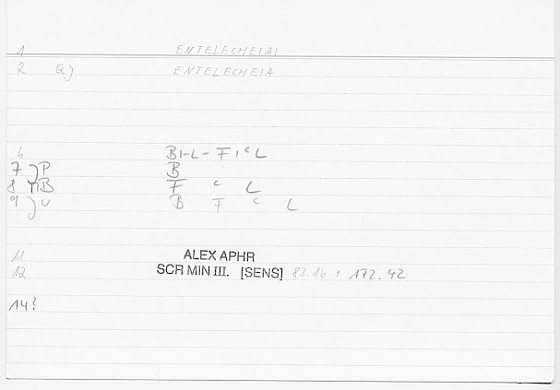 1 ENTELECHEIAI
2 a) ENTELECHEIA
6 BI-L-FICL
7 P B
8 B F c L
9 U B F c L
11 ALEX APHR
12 SCR MIN III. [SENS] 83.16 : 172.42
14?